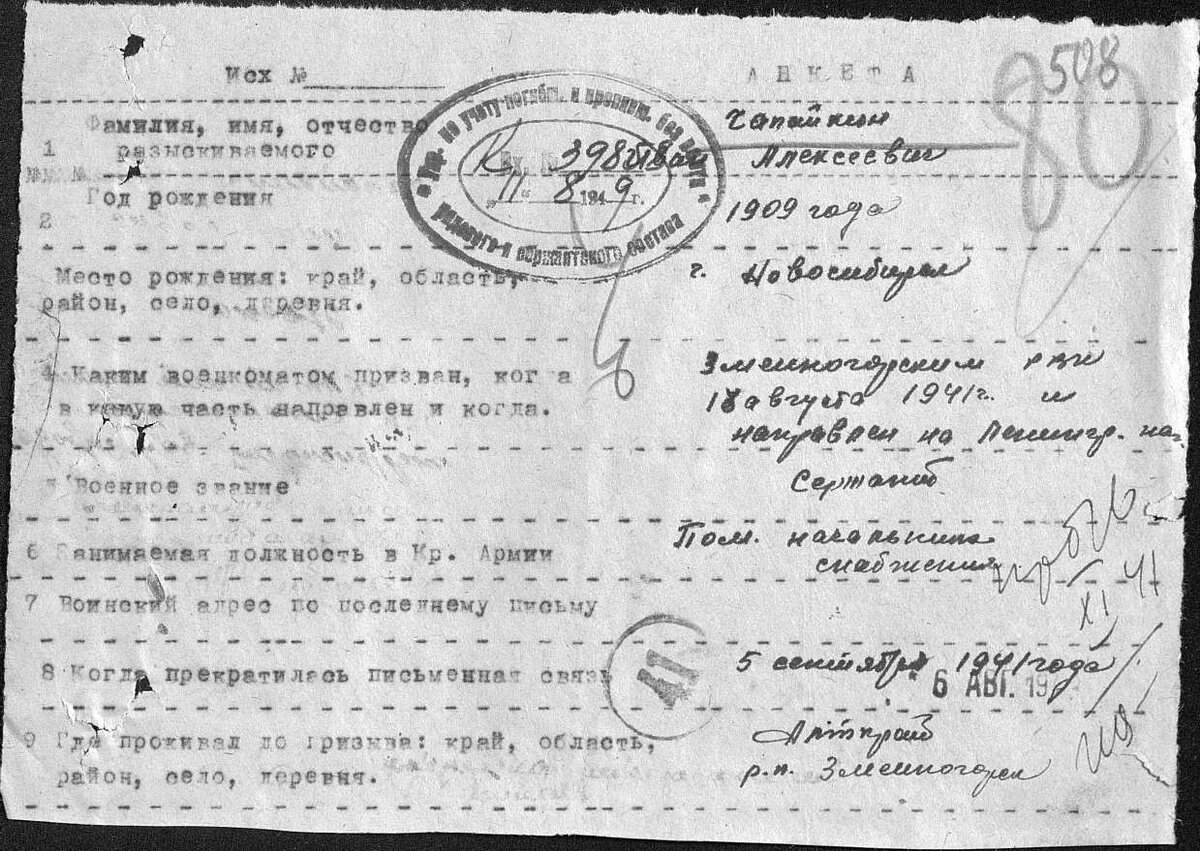 Исх № АНКЕТА
508
80
Фамилия, имя, отчество
1 разыскиваемого
Чапайкин
Алексеевич
Упр. по учету погибш. и пропавш. без вести
рядового и сержантского состава
Вх. №
"11" 8 1949 г.
Год рождения
2
1909 года
Место рождения: край, область,
район, село, деревня.
г. Новосибирск
4 Каким военкоматом призван, когда
в какую часть направлен и когда.
Змеиногорским рвк
18 августа 1941г. и
направлен на Ленингр. нап.
Военное звание
Сержант
6 Занимаемая должность в Кр. Армии
Пом. начальника
снабжения
7 Воинский адрес по последнему письму
XI 41
8 Когда прекратилась письменная связь
41
5 сентября 1941 года
6 АВГ. 19
9 Где проживал до призыва: край, область,
район, село, деревня.
Алткрай
р.п. Змеиногорск